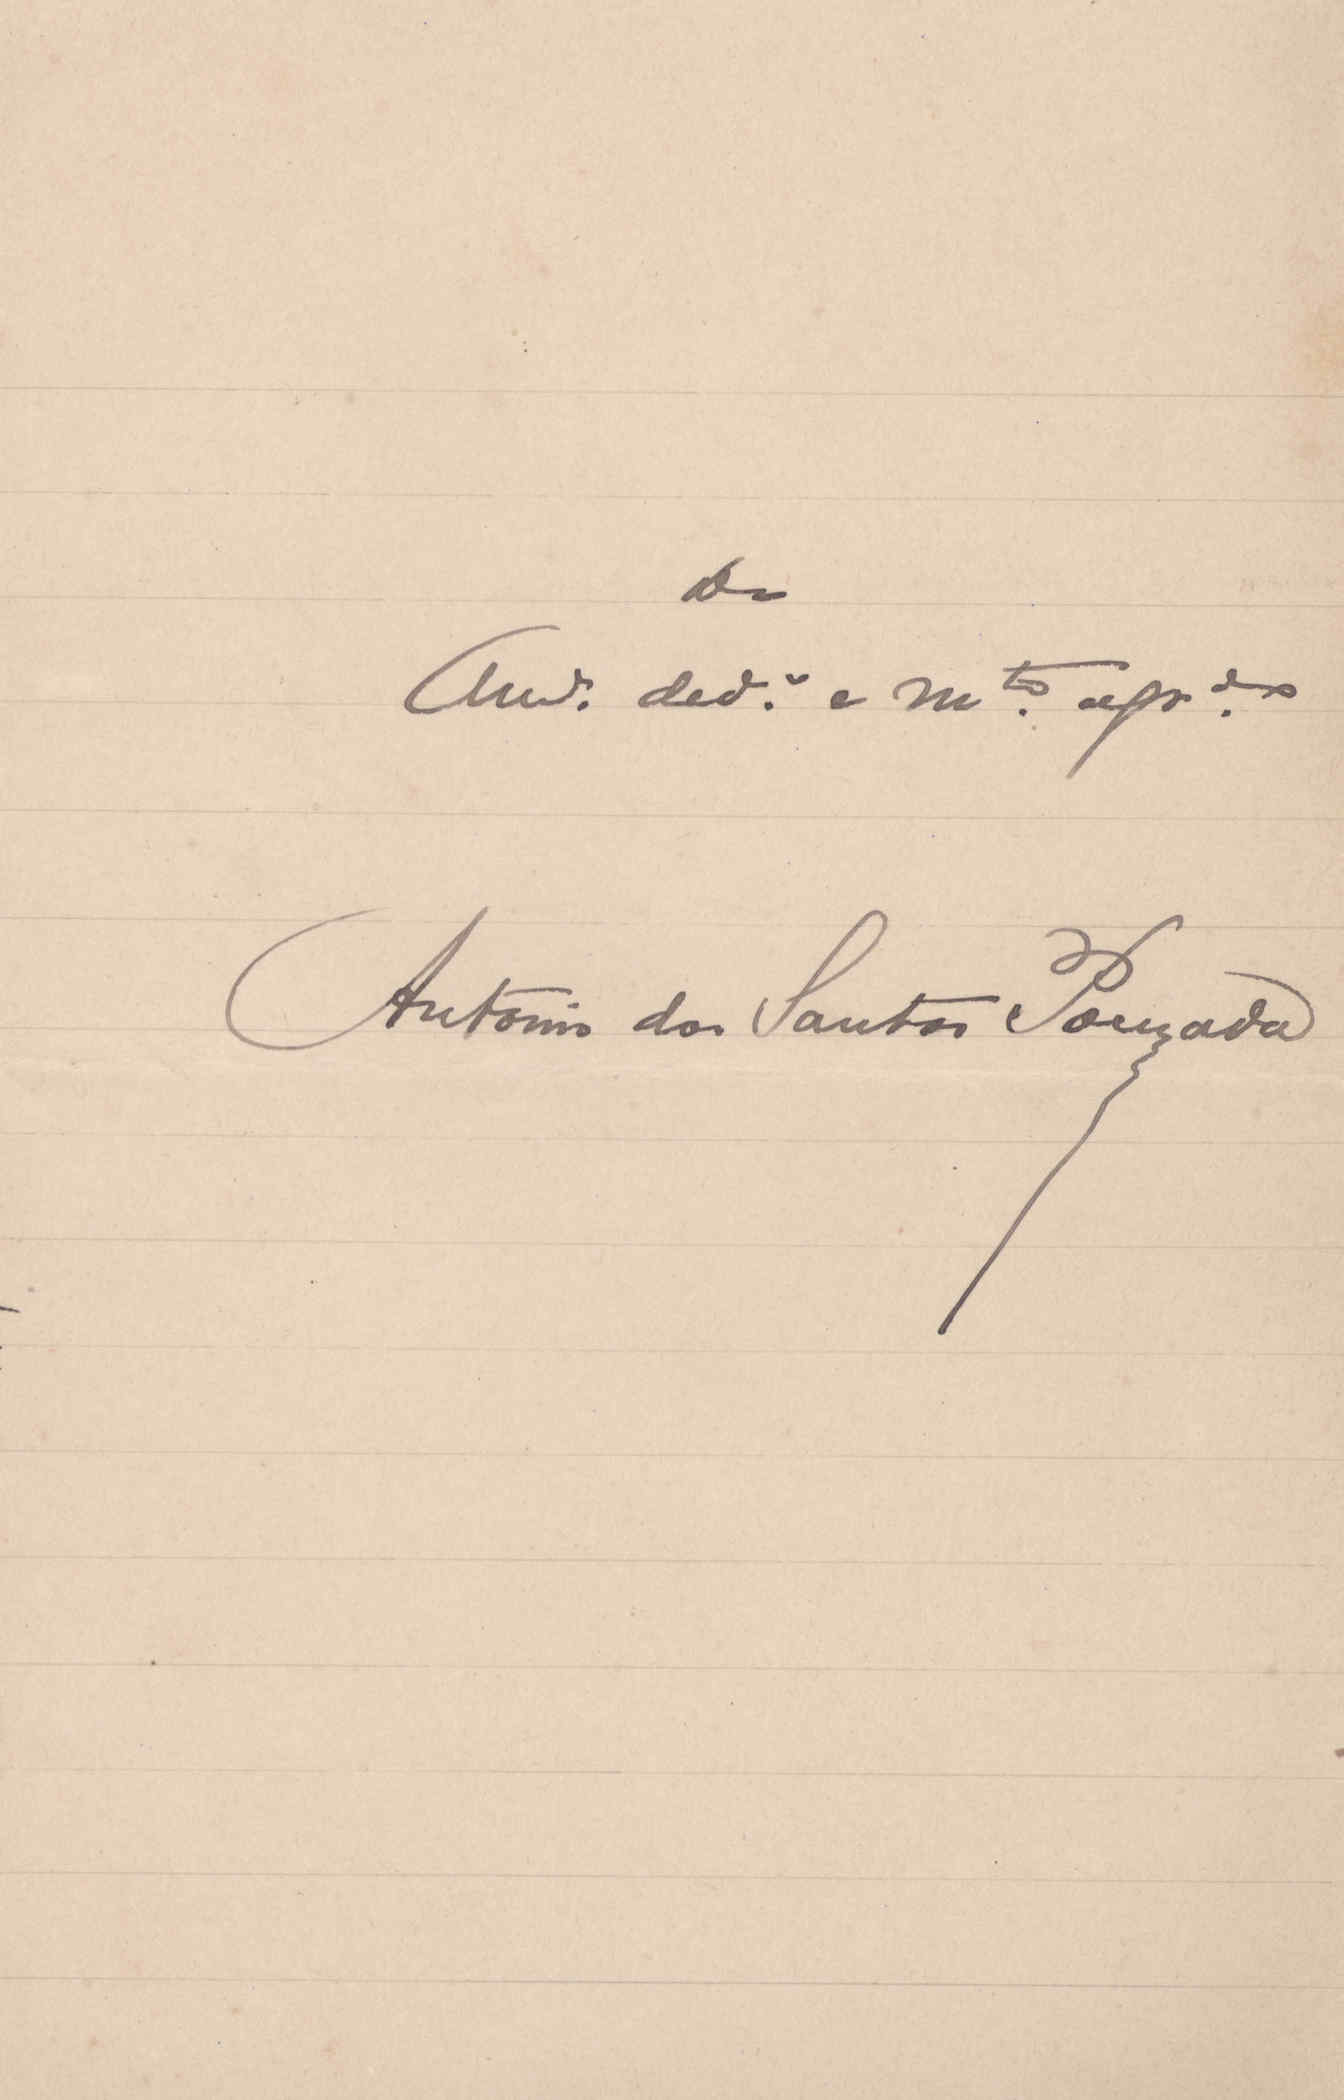 De
Am.º ded.º e m.to agr.do
Antonio dos Santos Pouzada